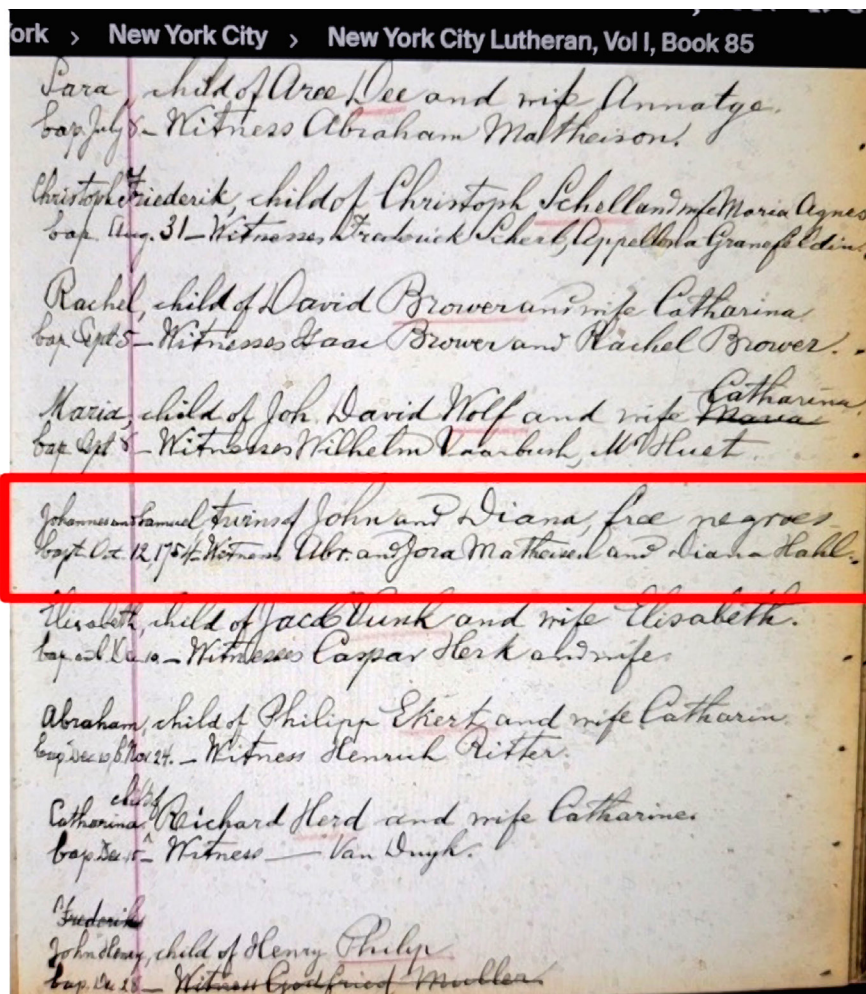 ork > New York City > New York City Lutheran, Vol I, Book 85
Sara, child of Aree Dee and wife Annatye.
bap July 8 – Witness Abraham Matheison.
Christoph Friederik, child of Christoph Schell and wife Maria Agnes
bap. Aug. 31 – Witnesses Frederick Scherb, Appellona Granefeldin.
Rachel, child of David Brower and wife Catharina
bap. Sept 5 – Witnesses Isaac Brower and Rachel Brower.
Catharina
Maria, child of Joh. David Wolf and wife Maria
bap Sept 8 – Witnesses Wilhelm Vaarbush, M Huet
Johannes and Samuel twins of John and Diana, free negroes
bapt. Oct. 12, 1754 – Witness Abr. and Jora Matheisen and Diana Hahl.
Elisabeth, child of Jacob Vunk and wife Elisabeth.
bap Dec 10. – Witnesses Caspar Herk and wife
Abraham, child of Philipp Ekert and wife Catharin
bap Dec 10, b Nov 24. – Witness Henrich Ritter.
child of
Catharina Richard Herd and wife Catharine.
bap Dec 15 – Witness — Van Duyk.
Frederik
John Henry, child of Henry Philip
bap. Dec 28 – Witness Godfried Muller